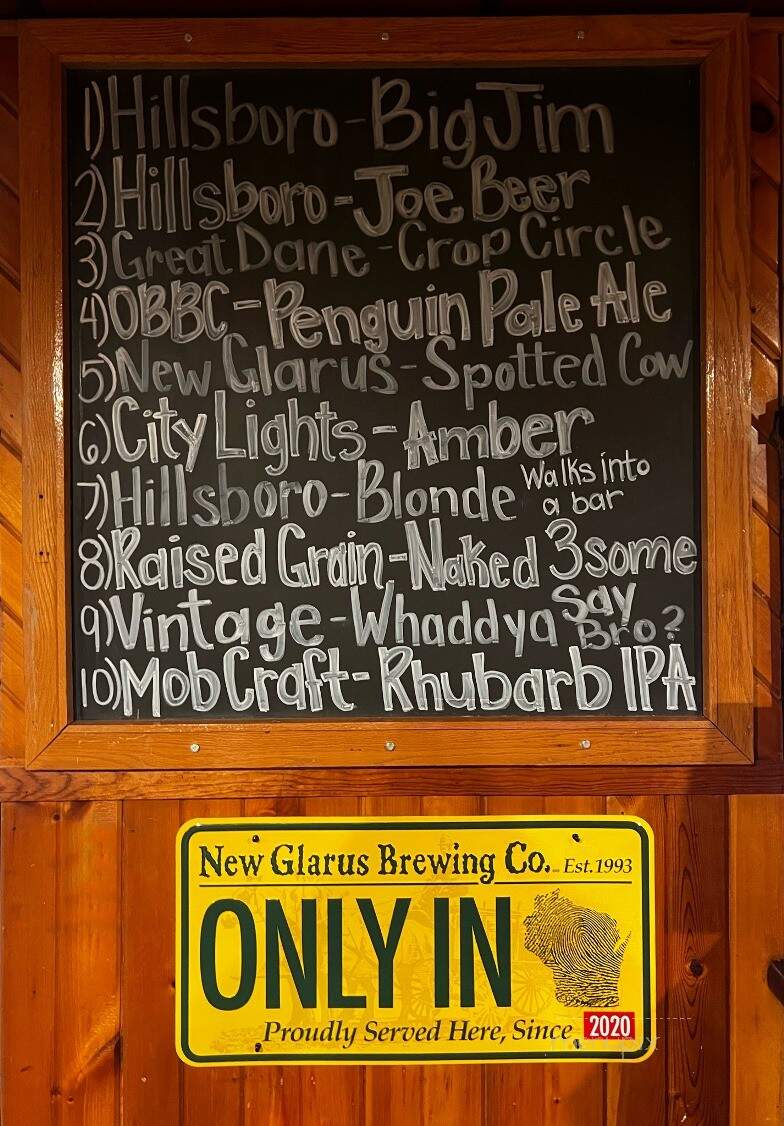 1) Hillsboro - Big Jim
2) Hillsboro - Joe Beer
3) Great Dane - Crop Circle
4) OBBC - Penguin Pale Ale
5) New Glarus - Spotted Cow
6) City Lights - Amber
7) Hillsboro - Blonde Walks into
a bar
8) Raised Grain - Naked 3some
9) Vintage - Whaddya Say
Bro?
10) MobCraft - Rhubarb IPA
New Glarus Brewing Co. Est. 1993
ONLY IN
Proudly Served Here, Since 2020